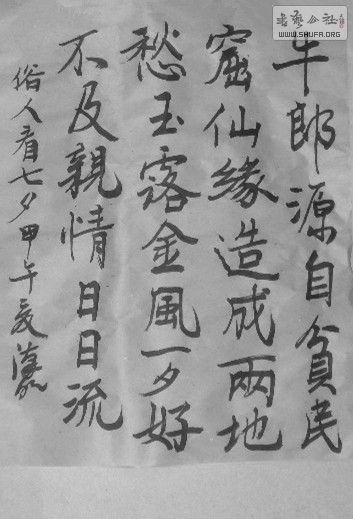 牛郎源自貧民
窟仙緣造成兩地
愁玉露金風一夕好
不及親情日日流
俗人看七夕甲午夏
書藝公社
WWW.SHUFA.ORG